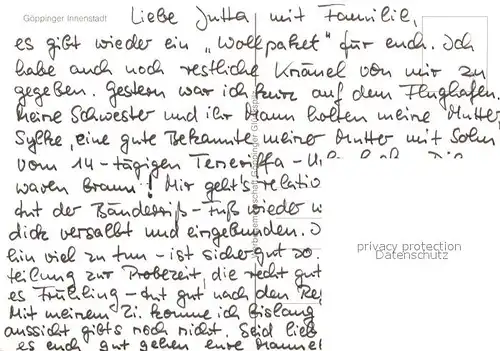 Göppinger Innenstadt
Liebe Jutta mit Familie,
es gibt wieder ein „Wollpaket" für euch. Ich
habe auch noch restliche Kränel von mir zu
gegeben. Gestern war ich kurz auf dem Flughafen.
Meine Schwester und ihr Mann holten meine Mutter
Sylke, eine gute Bekannte meiner Mutter mit Sohn
vom 14-tägigen Teneriffa-
waren braun! Mir geht's relativ
tut der Bänderriß-Fuß wieder
dick versalbt und eingebunden.
hin viel zu tun - ist sicher gut so.
teilung zur Probezeit, die recht gut
es Frühling - tut gut nach dem
Mit meinem Zi. komme ich bislang
aussicht gibts noch nicht. Seid lieb
es euch gut gehen eure
privacy protection
Datenschutz